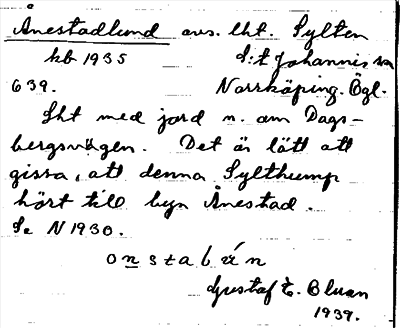 Ånestadlund avs. lht. Sylten
kb 1935 S:t Johannis sn
639. Norrköping. Ögl.
Lht med jord n. om Dags-
bergsvägen. Det är lätt att
gissa, att denna Sylthump
hört till byn Ånestad.
Se N 1930.
Gustaf E. Bluan
1939.